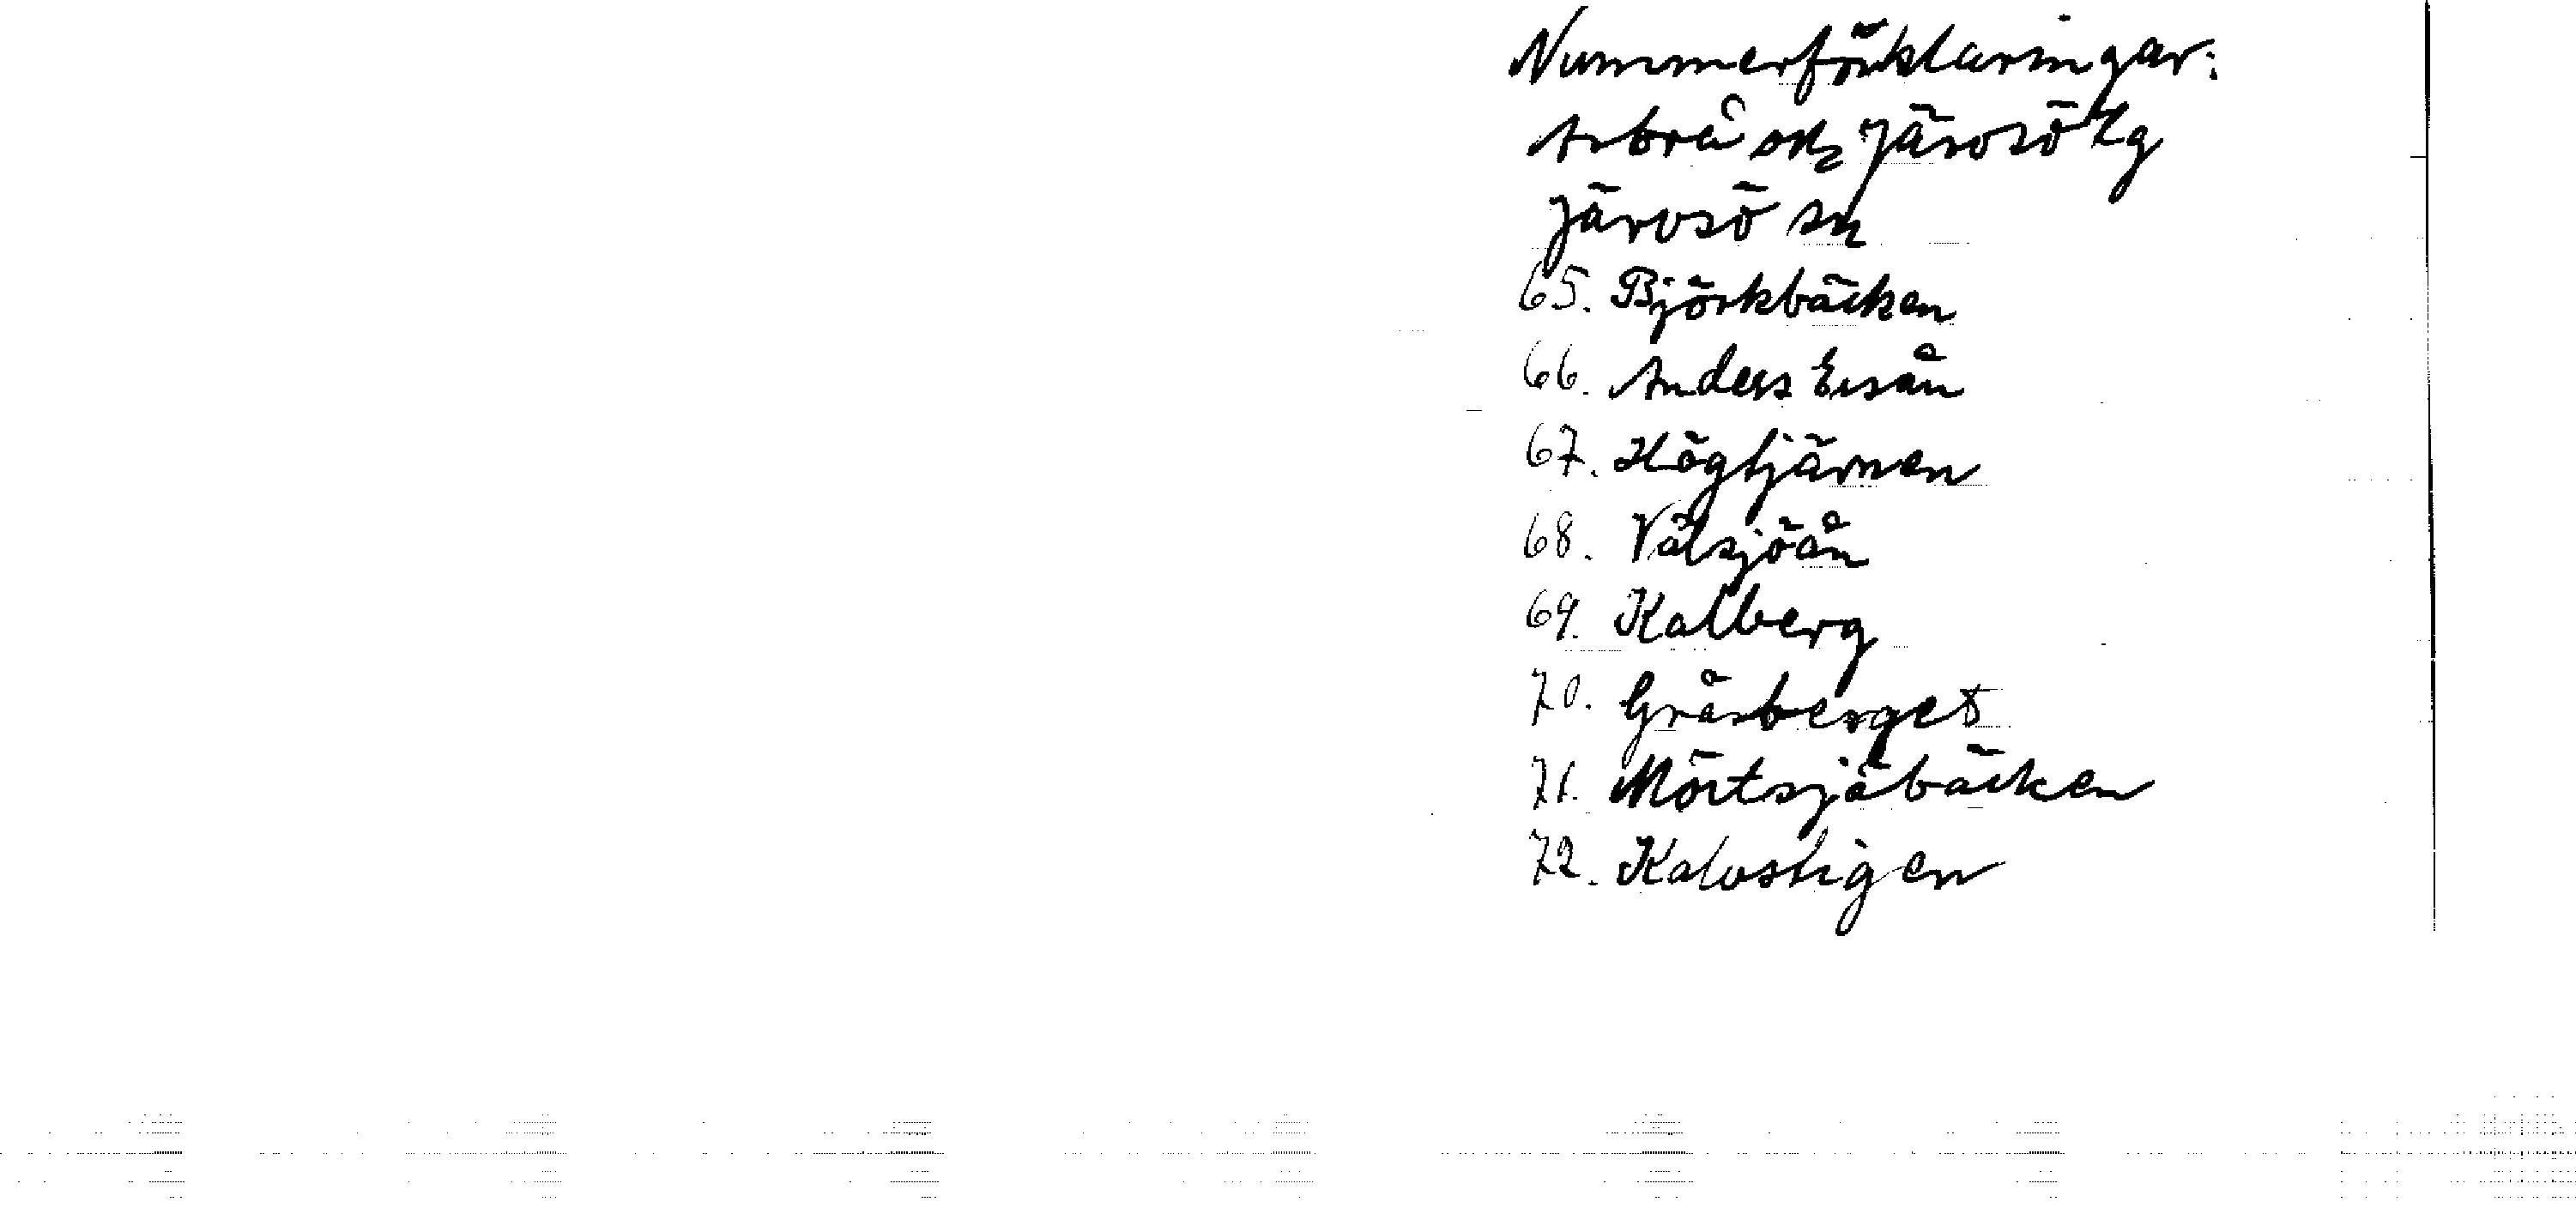 Nummerförklaringar:
Arbrå och Järvsö tg
Järvsö sn
65. Björkbäcken
66. Anders Ersån
67. Högtjärnen
68. Välsjöån
69. Kalberg
70. Gråsberget
71. Mörtsjöbäcken
72. Kalvstigen